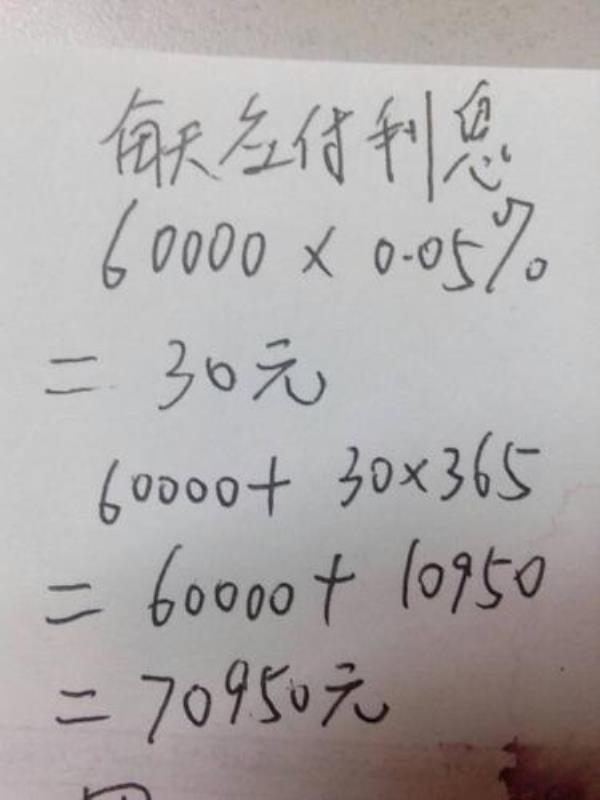 每天应付利息
60000 × 0.05%
= 30元
60000+ 30×365
= 60000+ 10950
= 70950元